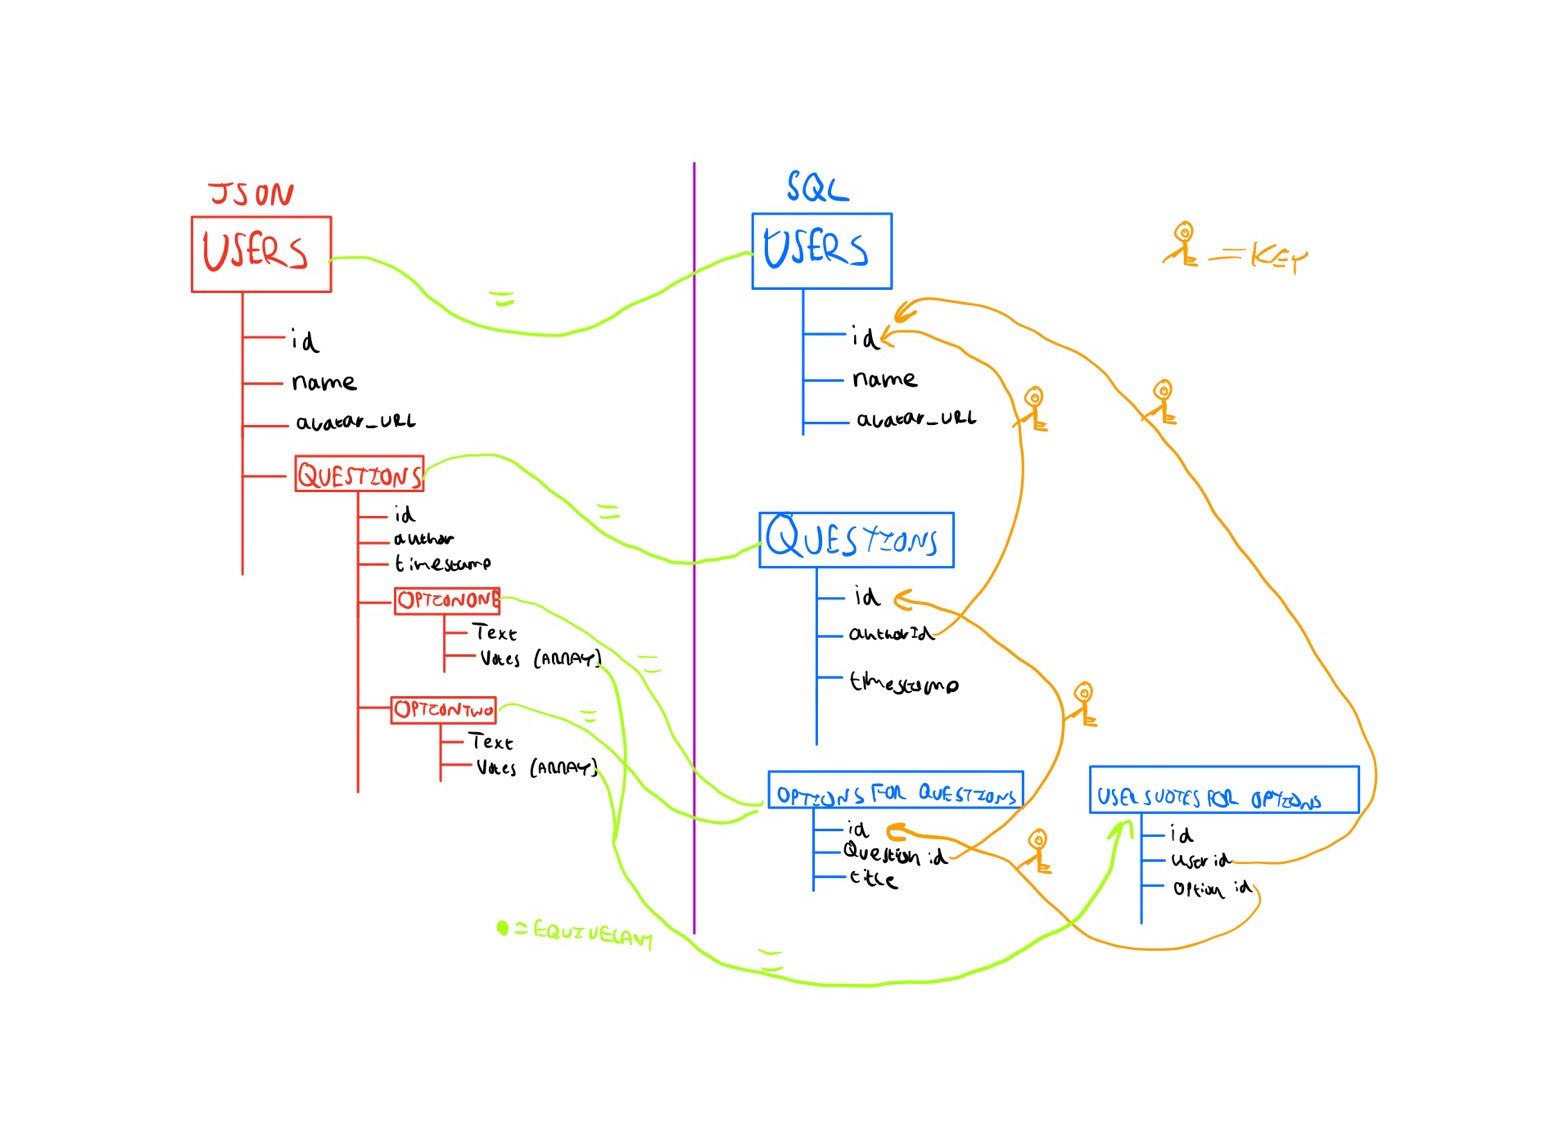 JSON
USERS
id
name
avatar_URL
QUESTIONS
id
author
timestamp
OPTIONONE
Text
Votes (ARRAY)
OPTIONTWO
Text
Votes (ARRAY)
SQL
USERS
id
name
avatar_URL
QUESTIONS
id
authorId
timestamp
OPTIONS FOR QUESTIONS
id
Question id
title
USERSVOTES FOR OPTIONS
id
User id
Option id
= KEY
=
=
=
=
=
= EQUIVELANT